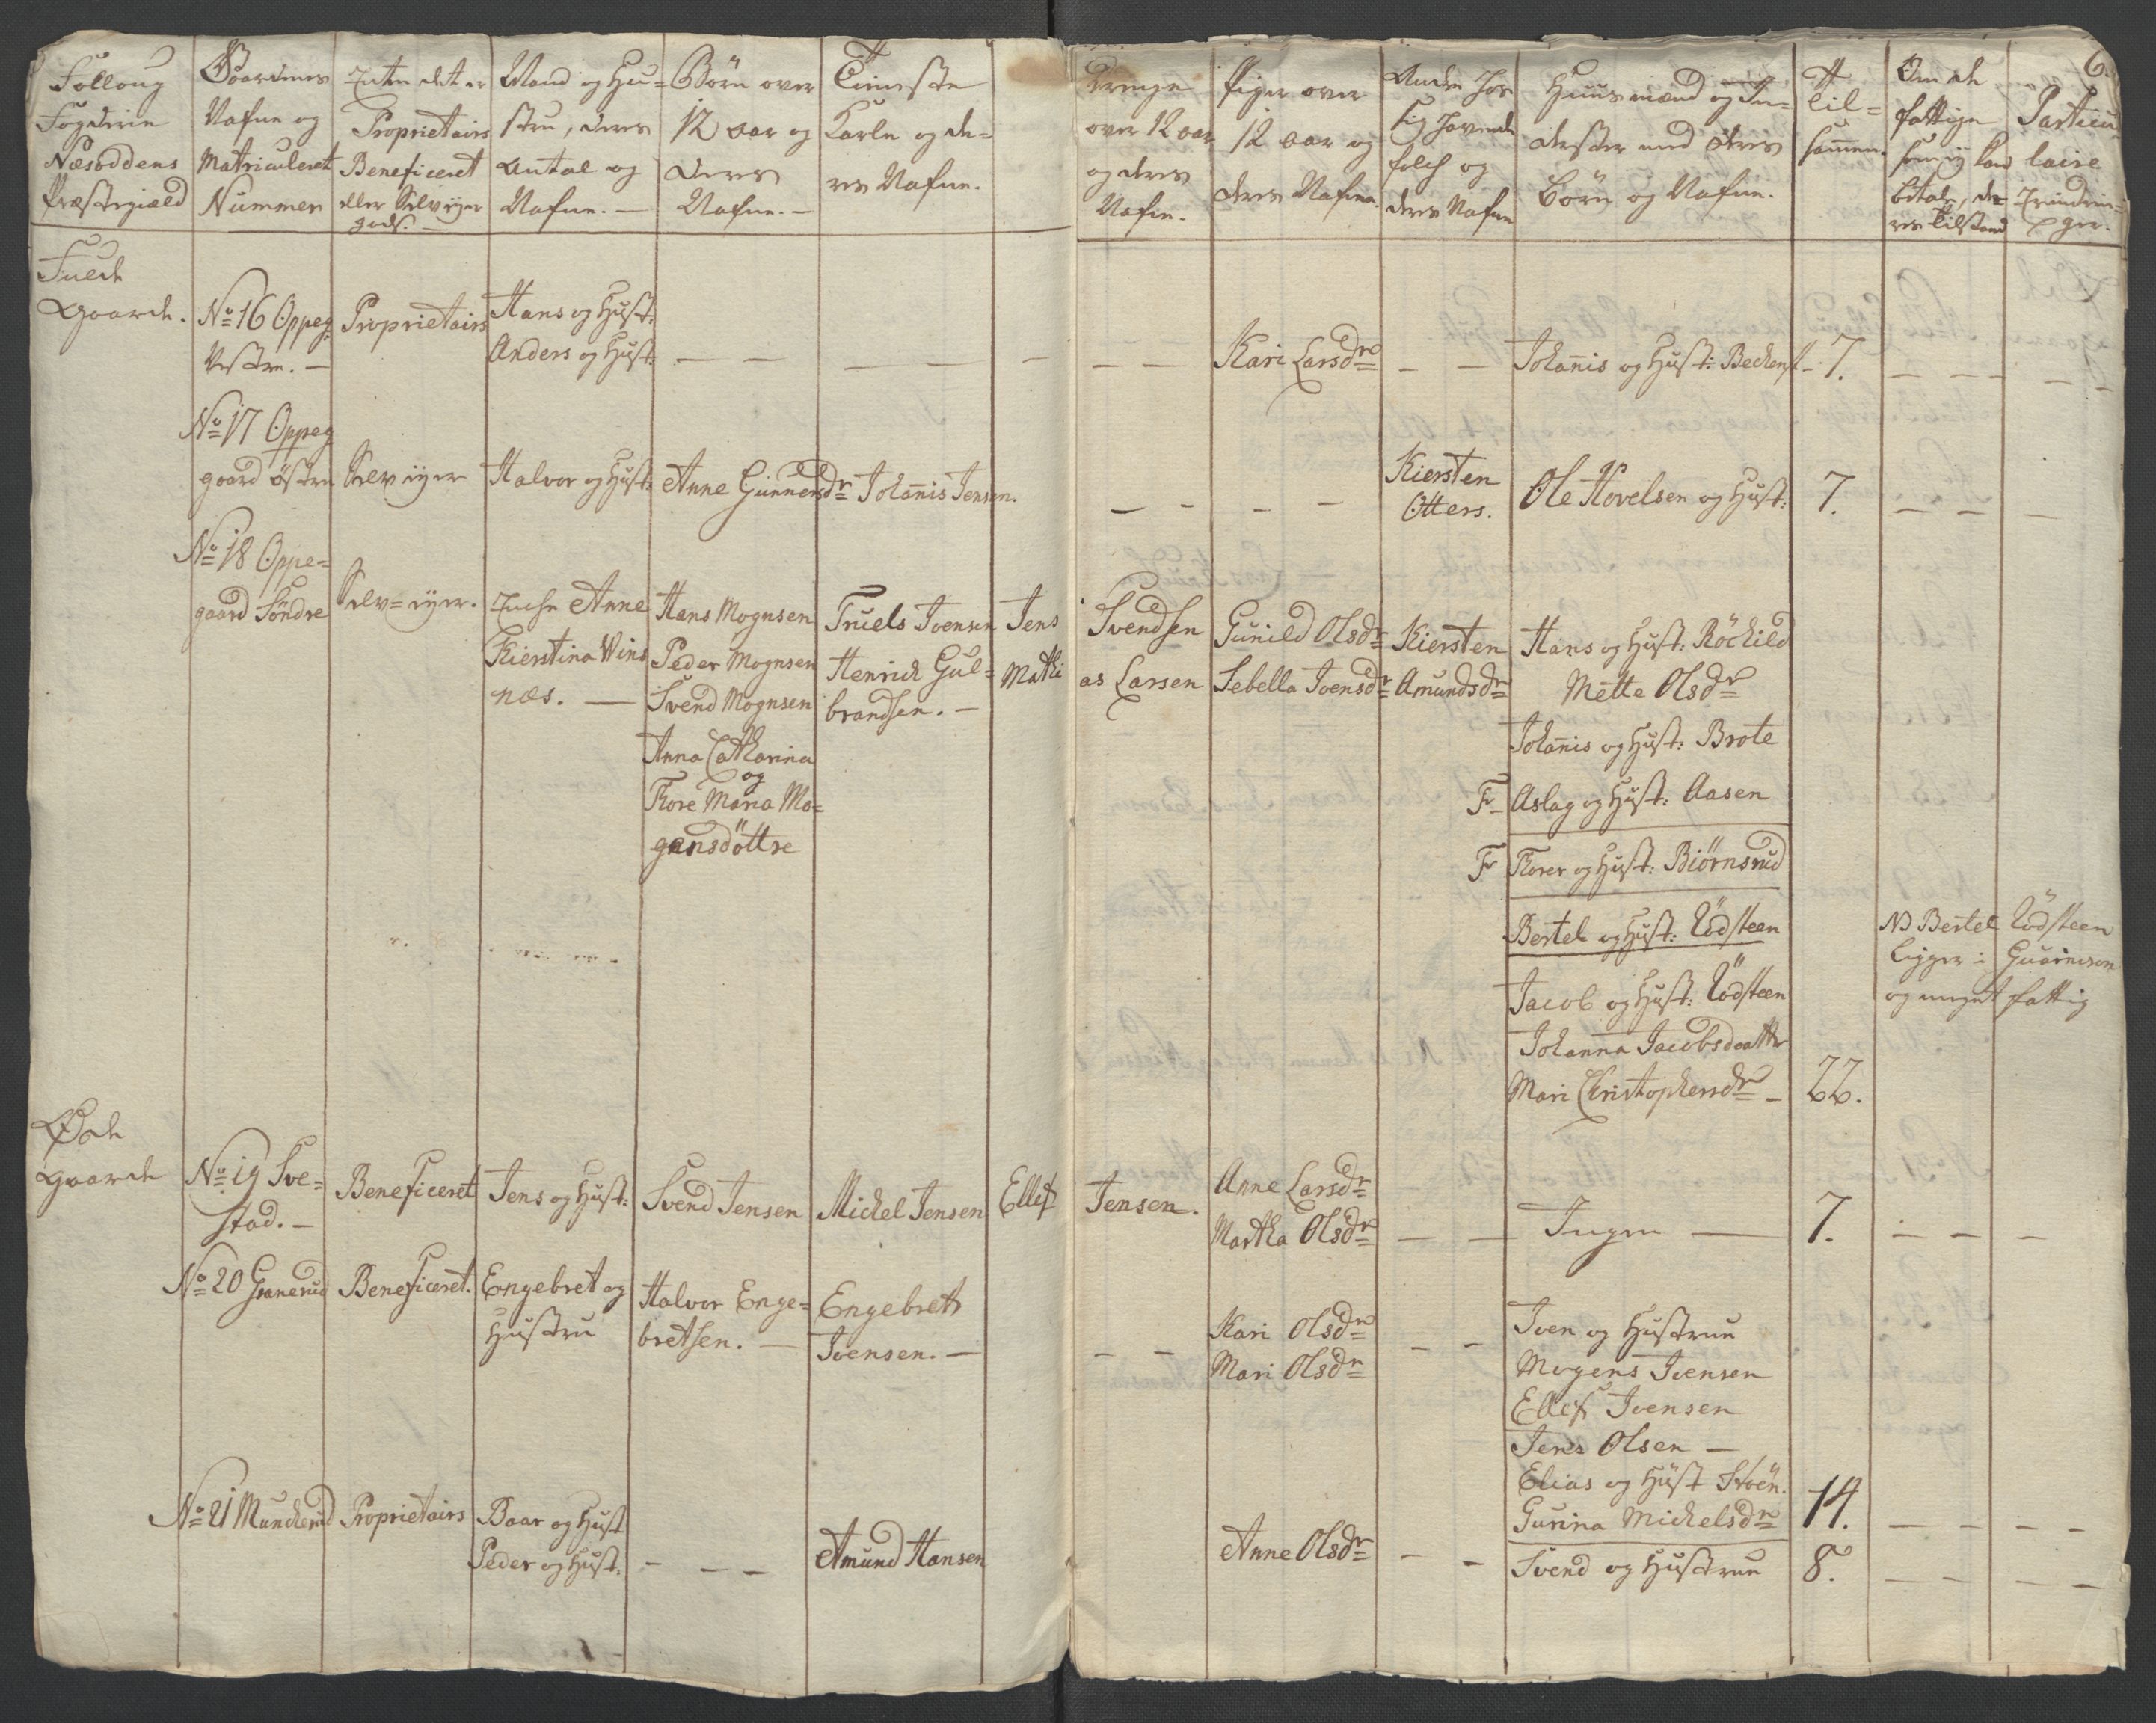 6.
Folloug
Fogderie
Næsoddens
Præstegiæld
Gaardenes
Nafne og
Matriculeret
Nummer
Enten det er
Proprietairs
Beneficeret
eller Selveyer
gods.
Mand og Hu-
stru, deres
Antal og
Nafne. —
Börn over
12 aar og
deres
Nafne. —
Tieneste
Karle og de-
res Nafne.
Drenge
over 12 aar
og deres
Nafne.
Piger over
12 aar og
deres Nafne
Andre hos
sig havende
folch og
deres Nafne
Huusmænd og In-
derster med deres
Börn og Nafne.
Til-
sammen.
Om de
fattige
som ej kand
betale, de-
res tilstand
Particu-
laire
Erindrin-
ger.
Fuede
Gaarde.
No 16 Oppeg:
Vestre. —
Proprietairs
Hans og Hust:
Anders og Hust:
Kari Larsdr
Johannis og Hust: Beckens
7.
No 17 Oppeg
gaard östre
Selveyer
Halvor og Hust:
Anne Gunnersdr
Johannis Jensen.
Kiersten
Otters.
Ole Hovelsen og Hust:
7.
No 18 Oppe-
gaard Söndre
Selv-eyer.
Enche Anne
Kierstina Wins
næs. —
Hans Mognsen
Peder Mognsen
Svend Mognsen
Anna Catharina
og
Thore Maria Mo-
gensdöttre
Truels Ivensen
Henrich Gul-
brandsen. —
Jens Svendsen
Mathias Larsen
Gunild Olsdr
Sebella Ivensdr
Kiersten
Amundsdr
Hans og Hust: Röchild
Mette Olsdr
Johannis og Hust: Brote
F Aslag og Hust: Aasen
F Thorer og Hust: Biörnsrud
Bertel og Hust: Lödsteen
Jacob og Hust: Lödsteen
Johanna Jacobsdaatter
Mari Christophersdr —
22.
NB Bertel Lödsteen
ligger i Guarnison
og meget fattig
Øde
Gaarde
No 19 Sve-
stad. —
Beneficeret
Jens og Hust:
Svend Jensen
Michel Jensen
Ellef Jensen.
Anne Larsdr
Martha Olsdr
Ingen
7.
No 20 Granerud
Beneficeret.
Engebret og
Hustru
Halvor Enge-
bretsen. —
Engebret
Ivensen. —
Kari Olsdr
Mari Olsdr
Iven og Hustrue
Mogens Ivensen
Ellef Ivensen
Jens Olsen —
Elias og Hust Stöen.
Gurina Michelsdr
14.
No 21 Muncherud
Proprietairs
Baar og Hust
Peder og Hust.
Amund Hansen
Anne Olsdr
Svend og Hustrue
8.